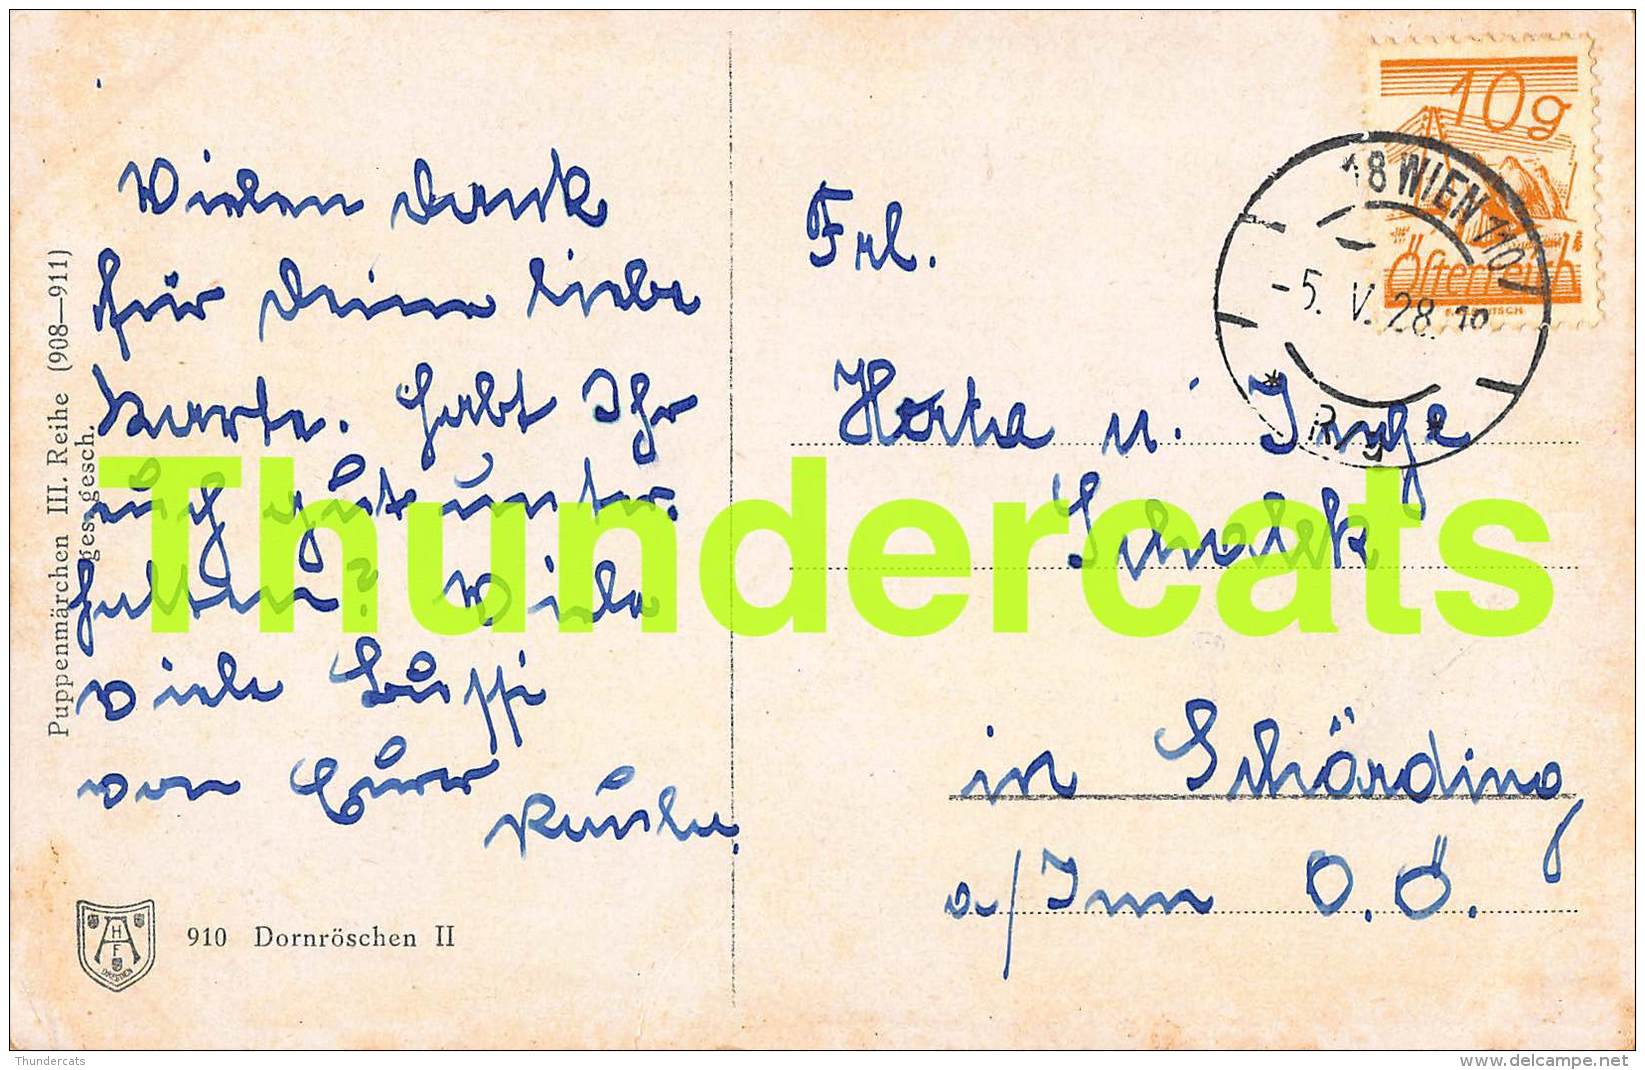 Puppenmärchen III. Reihe (908—911)
ges. gesch.
Vielen Dank
für Deine liebe
Karte. Habt Ihr
euch gut unter-
halten? Viele
viele Bussi
von Eurer
910 Dornröschen II
AHF
DRESDEN
10g
Österreich
18 WIEN 110
-5. V. 28. 10
Frl.
Herta u. Inge
in Schärding
a/Inn O.Ö.
Thundercats
Thundercats
delcampe.net